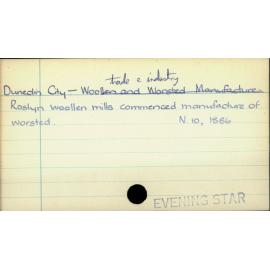 trade & industry
Dunedin City - Woollen and Worsted Manufacture.
Roslyn woollen mills commenced manufacture of
worsted. N. 10, 1886
EVENING STAR